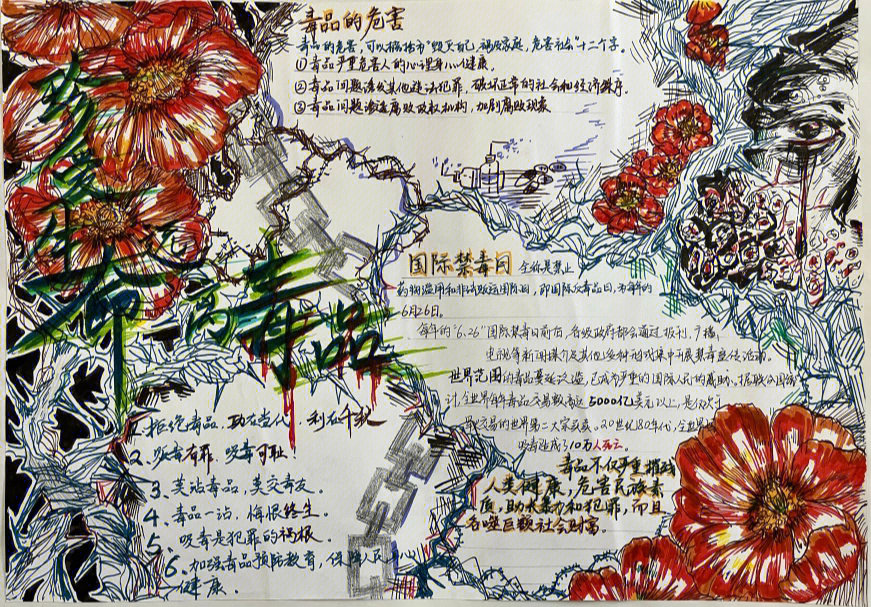 毒品的危害
毒品的危害，可以概括为"毁灭自己，祸及家庭，危害社会"十二个字。
①毒品严重危害人的心理身心健康。
②毒品问题诱发其他违法犯罪，破坏正常的社会和经济秩序
③毒品问题渗透腐败政权机构，加剧腐败现象
珍爱生命
远离毒品
国际禁毒日 全称是禁止
药物滥用和非法贩运国际日，即国际反毒品日，为每年的
6月26日。
每年的"6.26"国际禁毒日前后，各级政府都会通过报刊、广播、
电视等新闻媒介及其他多种形式集中开展禁毒宣传活动。
世界范围的毒品蔓延泛滥，已成为严重的国际
计，全世界每年毒品交易额高达5000亿美元以上，是仅次于
交易的世界第二大宗买卖。20世纪80年代，全世界
吸毒造成了10万人死亡。
毒品不仅严重摧残
人类健康，危害民族素
质，助长暴力和犯罪，而且
吞噬巨额社会财富。
1、拒绝毒品，功在当代，利在千秋
2、吸毒有罪，吸毒可耻
3、莫沾毒品，莫交毒友。
4、毒品一沾，悔恨终生。
5、吸毒是犯罪的祸根。
6、加强毒品预防教育，保障人民身心
健康。